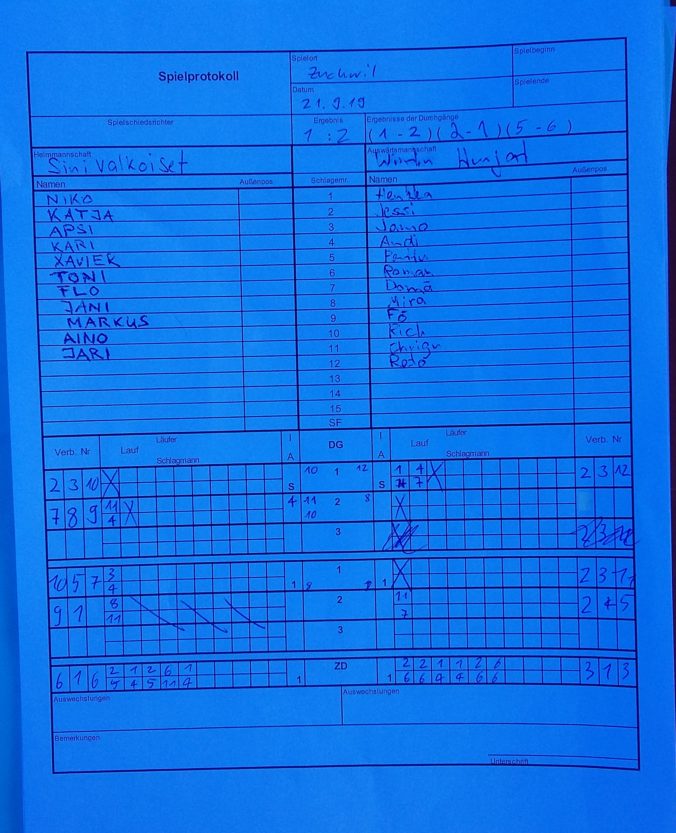 Spielprotokoll
Spielort
Zuchwil
Spielbeginn
Datum
21.9.19
Spielende
Spielschiedsrichter
Ergebnis
1 : 2
Ergebnisse der Durchgänge
(1 - 2) (2 - 1) (5 - 6)
Heimmannschaft
Sinivalkoiset
Auswärtsmannschaft
Namen Außenpos. Schlagernr. Namen Außenpos.
NIKO 1
KATJA 2 Jessi
APSI 3 Jamo
KARI 4 Andi
XAVIER 5
TONI 6 Roman
FLO 7
JANI 8 Mira
MARKUS 9 Fö
AINO 10 Rich
JARI 11 Chrigu
12 Reto
13
14
15
SF
Verb. Nr Läufer I DG I Läufer Verb. Nr
Lauf Schlagmann A A Lauf Schlagmann
2 3 10 X S 10 1 12 S 1 4 X 2 3 12
7
7 8 9 11 X 4 11 2 8 X
4 10
3
10 5 7 3 1 8 1 1 X 2 3
4
9 1 8 2 11 2
11 7
3
6 1 6 2 1 2 6 1 1 ZD 1 2 2 1 1 2 6 3 1 3
4 5 11 6 6 4 4 6 6
Auswechslungen Auswechslungen
Bemerkungen
Unterschrift